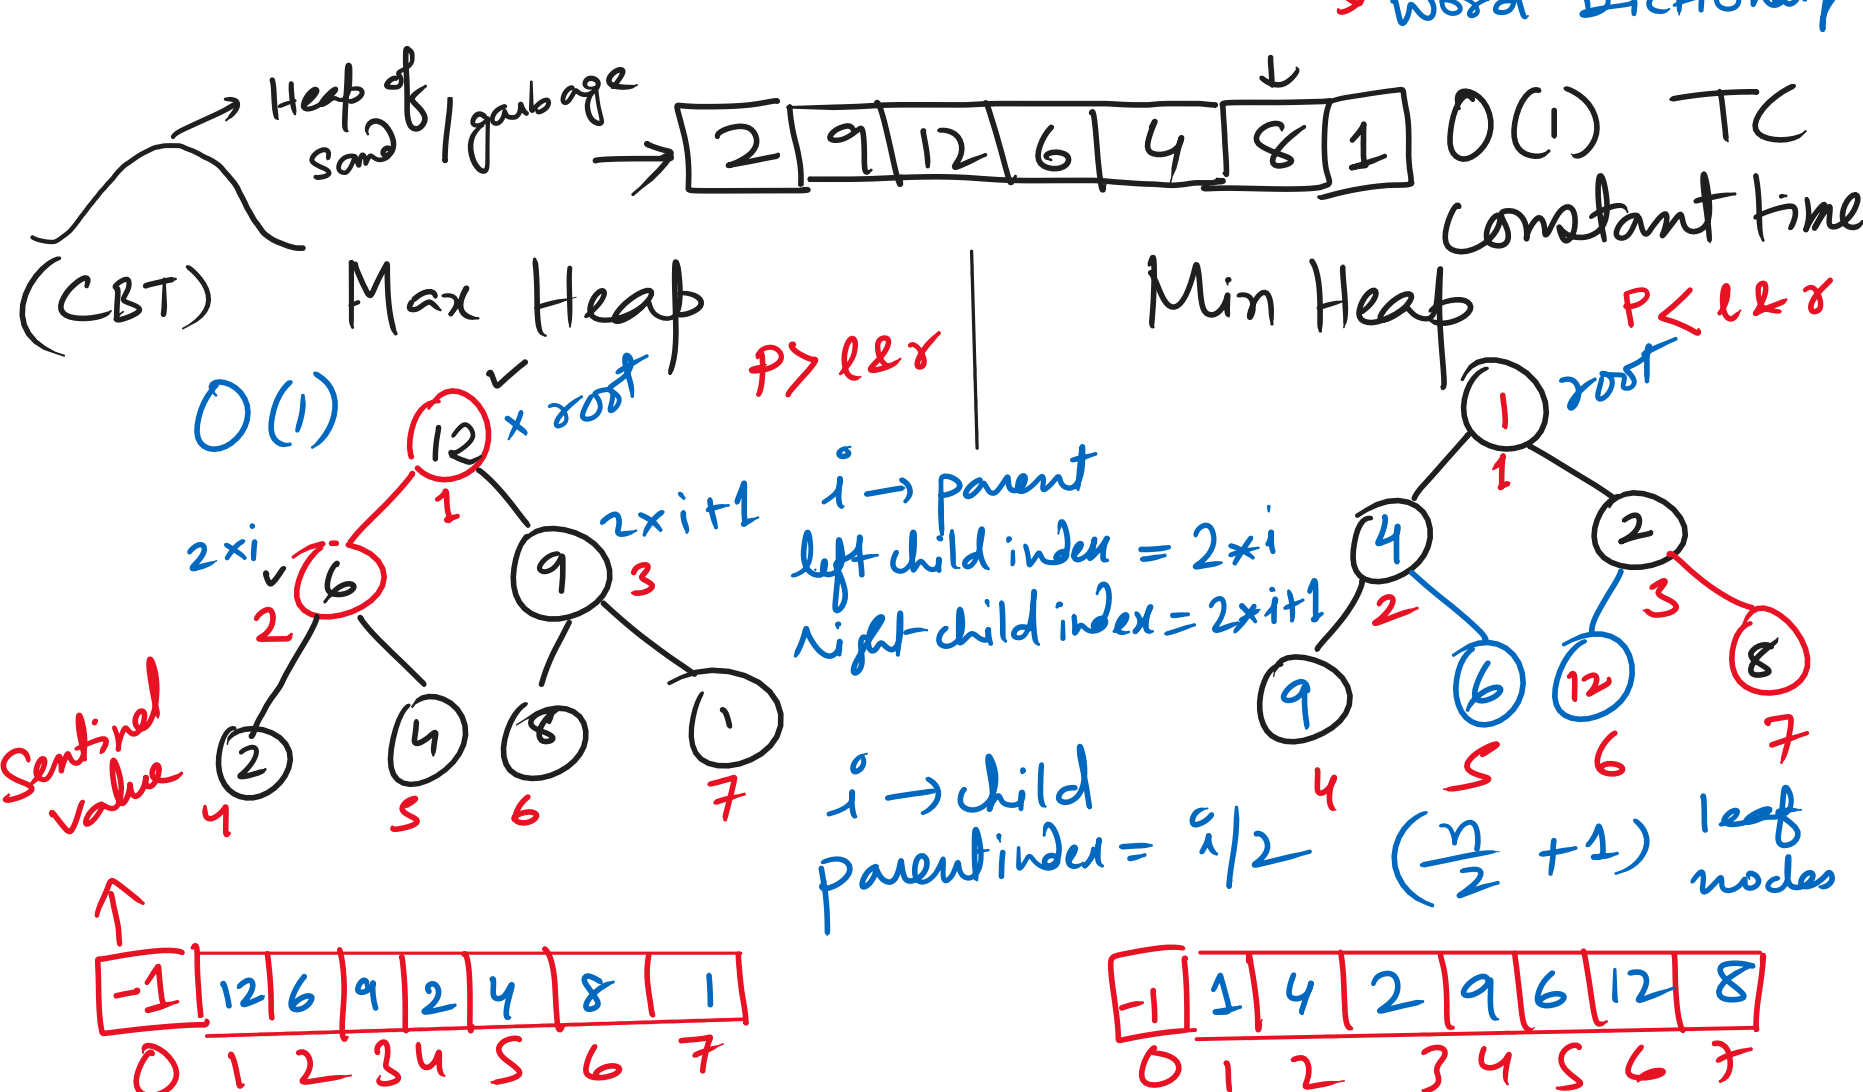 Word Dictionary
Heap of
sand / garbage
2 9 12 6 4 8 1
O(1) TC
constant time
(CBT)
Max Heap
Min Heap
P > l & r
P < l & r
O(1)
12 x root
1
2×i
6
2
9
3
2×i+1
2
4
4
5
8
6
1
7
i → parent
left child index = 2×i
right child index = 2×i+1
i → child
parent index = i/2
root
1
1
4
2
2
3
9
4
6
5
12
6
8
7
(n/2 + 1) leaf
nodes
Sentinel
value
-1 12 6 9 2 4 8 1
0 1 2 3 4 5 6 7
-1 1 4 2 9 6 12 8
0 1 2 3 4 5 6 7